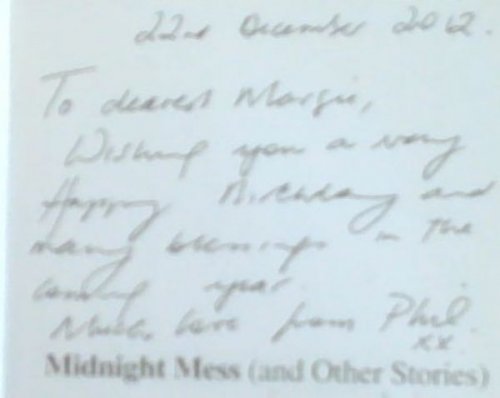 22nd December 2012.
To dearest Margie,
Wishing you a very
Happy Birthday and
many blessings in the
coming year.
Much love from Phil.
xx.
Midnight Mess (and Other Stories)